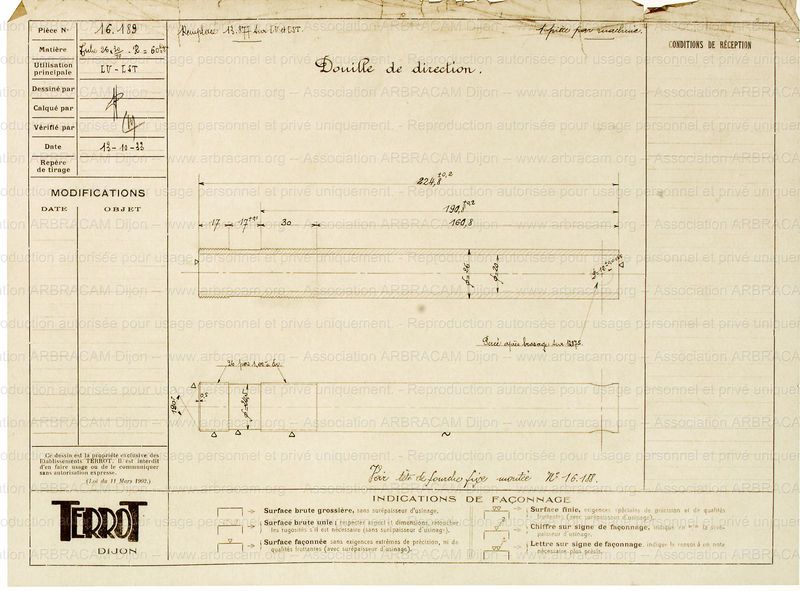 Pièce N° 16.189
Matière Tube 26x20
Utilisation principale LV - LST
Dessiné par
Calqué par
Vérifié par
Date 13-10-33
Repère de tirage
MODIFICATIONS
DATE OBJET
Remplace 13.877 sur LV et LST
1 pièce par machine.
CONDITIONS DE RÉCEPTION
Douille de direction.
224,8 ±0,2
190,8 ±0,2
17 17 ±0,1 30 160,8
Percé après brasage sur
120°
Voir tête de fourche fixe montée N° 16.188.
Ce dessin est la propriété exclusive des
Etablissements TERROT. Il est interdit
d'en faire usage ou de le communiquer
sans autorisation expresse.
(Loi du 11 Mars 1902.)
TERROT
DIJON
INDICATIONS DE FAÇONNAGE
Surface brute grossière, sans surépaisseur d'usinage.
Surface brute unie; respecter aspect et dimensions, retoucher
les rugosités s'il est nécessaire (sans surépaisseur d'usinage).
Surface façonnée sans exigences extrêmes de précision, ni de
qualités frottantes (avec surépaisseur d'usinage).
Surface finie, exigences spéciales de précision et de qualités
frottantes (avec surépaisseur d'usinage).
Chiffre sur signe de façonnage, indique en m/m la surépaisseur d'usinage.
Lettre sur signe de façonnage, indique le renvoi à une note
nécessaire plus précis.
www.arbracam.org -- Association ARBRACAM Dijon -- www.arbracam.org -- Association ARBRACAM Dijon
Reproduction autorisée pour usage personnel et privé uniquement.